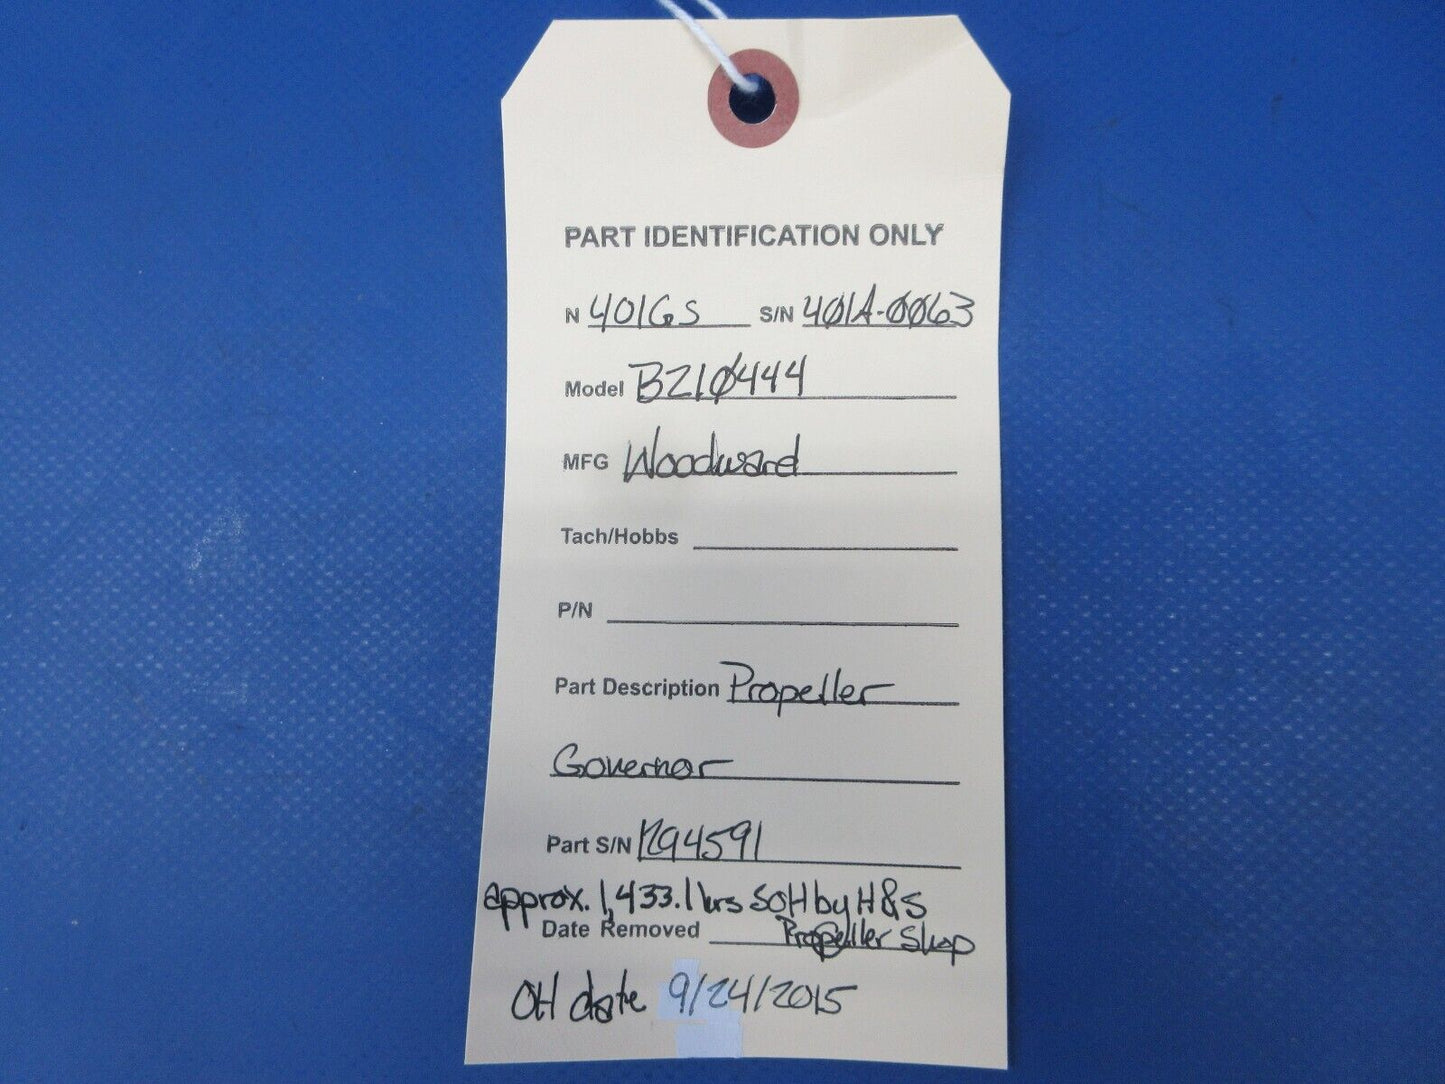 PART IDENTIFICATION ONLY
N 401GS S/N 401A-0063
Model B210444
MFG Woodward
Tach/Hobbs
P/N
Part Description Propeller
Governor
Part S/N 1294591
approx. 1,433.1 hrs SOH by H&S
Date Removed Propeller Shop
OH date 9/24/2015